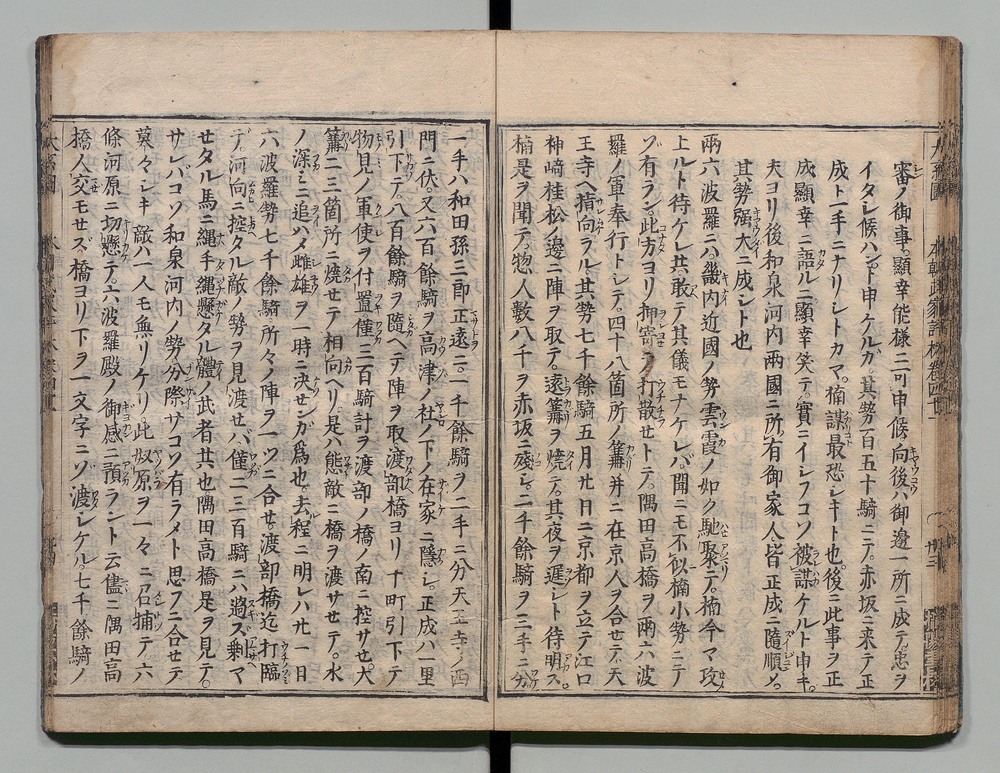 審ノ御事、顯幸能様ニ可申候、向後ハ御邊一所ニ成テ忠ヲ
イタシ候ハント申ケルガ、其勢百五十騎ニテ、赤坂ニ来テ正
成ト一手ニナリシトカマ、楠謀最恐シキト也。後ニ此事ヲ正
成顯幸ニ語ルニ顯幸笑テ、實ニイレフコソ被謀ケルト申キ。
夫ヨリ後和泉河内兩國ニ所有御家人皆正成ニ隨順メ。
其勢强大ニ成シト也
兩六波羅ニハ畿内近國ノ勢雲霞ノ如ク馳聚テ、楠今マ攻
上ルト待ケレ共敢テ其儀モナケレバ、聞ニモ不似楠小勢ニテ
ゾ有ラン。此方ヨリ押寄テ打散セトテ、隅田高橋ヲ兩六波
羅ノ軍奉行トシテ、四十八箇所ノ篝并ニ在京人ヲ合セテ、天
王寺ヘ指向ラル。其勢七千餘騎五月廿日ニ京都ヲ立テ江口
神﨑桂松ノ邊ニ陣ヲ取テ、遠篝ヲ燒テ、其夜ヲ遅シト待明ス。
楠是ヲ聞テ、惣人數八千ヲ赤坂ニ殘シ。二千餘騎ヲ三手ニ分
一手ハ和田孫三郎正遠ニ一千餘騎ヲ二手ニ分天王寺ノ西
門ニ伏。又六百餘騎ヲ高津ノ社ノ下ノ在家ニ隱シ。正成ハ一里
引下テ、八百餘騎ヲ隨ヘテ陣ヲ取渡部橋ヨリ、十町引下テ
物見ノ軍使ヲ付置僅ニ三百騎計ヲ渡部ノ橋ノ南ニ控サセ、大
篝二三箇所ニ燒セテ相向ヘリ。是ハ態敵ニ橋ヲ渡サセテ。水
ノ深ミニ追ハメ雌雄ヲ一時ニ决センガ爲也。去程ニ明レハ廿一日
六波羅勢七千餘騎所々ノ陣ヲ一ツニ合セ。渡部橋迄打臨
テ、河向ニ控タル敵ノ勢ヲ見渡セバ、僅ニ二三百騎ニハ過ス剩マ
セタル馬ニ縄手縄懸タル體ノ武者共也隅田高橋是ヲ見テ。
サレバコソ和泉河内ノ勢分際サコソ有ラメト思フニ合セテ
墓々シキ敵ハ一人モ無リケリ此奴原ヲ一々ニ召捕テ六
條河原ニ切懸テ。六波羅殿ノ御感ニ預ラント云儘ニ隅田高
橋人交モセズ、橋ヨリ下ヲ一文字ニゾ渡シケル。七千餘騎ノ